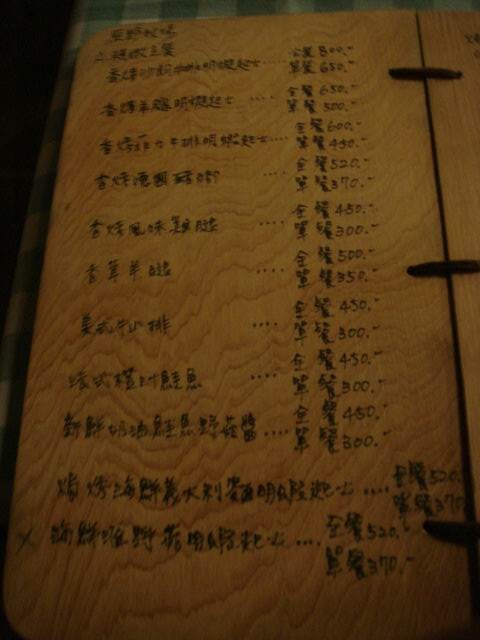 全餐 800.-
單餐 650.-
全餐 650.-
香烤羊腿明蝦起士 .... 單餐 500.-
全餐 600.-
香烤菲力牛排明蝦起士 ... 單餐 450.-
全餐 520.-
香烤德國豬腳 單餐 370.-
全餐 450.-
香烤風味雞腿 .... 單餐 300.-
全餐 500.-
香草羊腿 .... 單餐 350.-
全餐 450.-
美式牛小排 .... 單餐 300.-
全餐 450.-
法式橙汁鮭魚 .... 單餐 300.-
全餐 450.-
新鮮奶油鮭魚野菇醬 .... 單餐 300.-
全餐 520.-
焗烤海鮮義大利麵明蝦起士 .... 單餐 370.-
x 海鮮 野菇明蝦起士 .... 全餐 520.-
單餐 370.-